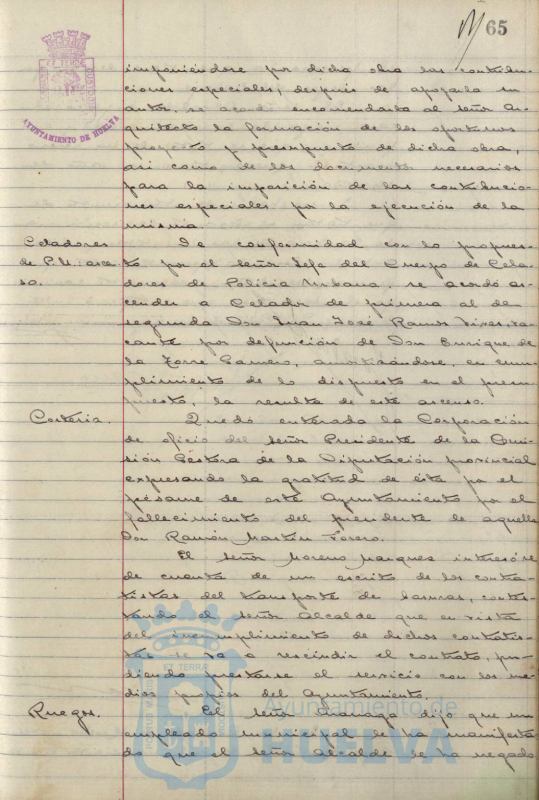 65
AYUNTAMIENTO DE HUELVA
imponiéndose por dicha obra las contribu-
ciones especiales, después de apoyarla su
autor, se acordó encomendarla al señor Ar-
quitecto la formación de los oportunos
proyecto y presupuesto de dicha obra,
asi como de los documentos necesarios
para la imposición de las contribucio-
nes especiales por la ejecución de la
misma.
Celadores
de P. U.: asce-
so.
De conformidad con lo propues-
to por el señor Jefe del Cuerpo de Cela-
dores de Policía Urbana, se acordó as-
cender a Celador de primera al de
segunda Don Juan José Ramos Vivas, va-
cante por defunción de Don Enrique de
la Torre, amortizándose, en cum-
plimiento de lo dispuesto en el presu-
puesto, la resulta de este ascenso.
Cortesía.
Quedó enterada la Corporación
de oficio del señor Presidente de la Comi-
sión Gestora de la Diputación provincial
expresando la gratitud de ésta por el
pésame de este Ayuntamiento por el
fallecimiento del presidente de aquella
Don Ramón Martín
El señor Moreno Marquez interesóse
de cuenta de un escrito de los contra-
tistas del transporte de basuras, contes-
tando el señor Alcalde que en vista
del incumplimiento de dichos contratis-
tas se va a rescindir el contrato, pu-
diendo prestarse el servicio con los me-
dios propios del Ayuntamiento.
Ruegos.
El señor dijo que un
empleado municipal le ha manifesta-
do que el señor Alcalde se ha negado
PORTUS MARIS ET TERRAE
Ayuntamiento de
HUELVA